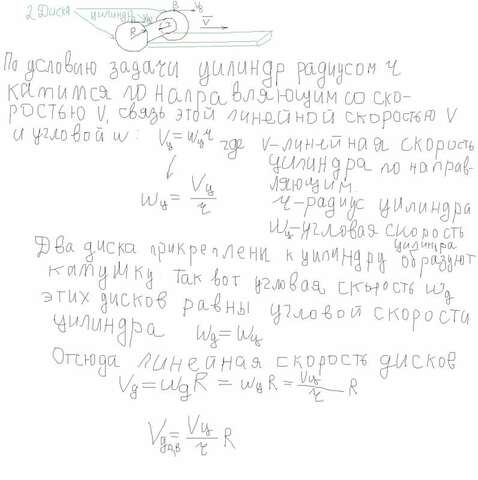 2 Диска цилиндр B Vд
V
R r
По условию задачи цилиндр радиусом r
катится по направляющим со ско-
ростью V, связь этой линейной скоростью V
и угловой w: Vц = wц r где V-линейная скорость
цилиндра по направ-
ляющим.
wц = Vц / r
r-радиус цилиндра
wц-угловая скорость
цилиндра
Два диска прикреплени к цилиндру образуют
катушку так вот угловая скорость wд
этих дисков равны угловой скорости
цилиндра wд = wц
Отсюда линейная скорость дисков
Vд = wд R = wц R = Vц / r R
Vд A,B = Vц / r R